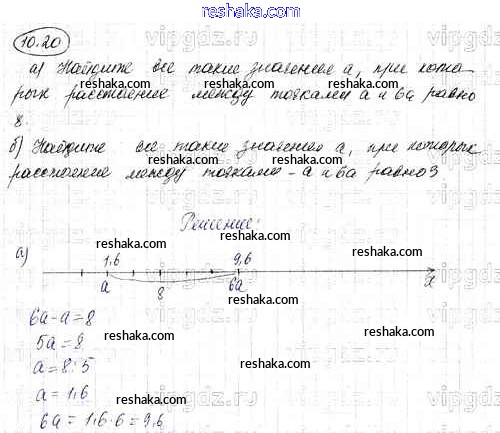 reshaka.com
10.20
а) Найдите все такие значения а, при кото-
рых расстояние между точками а и 6а равно
8.
б) Найдите все такие значения а, при которых
расстояние между точками -а и 6а равно 3
Решение:
а)
1,6 9,6
а 8 6а x
6а-а=8
5а=8
а=8:5
а=1,6
6а=1,6·6=9,6
reshaka.com
reshaka.com
reshaka.com
reshaka.com
reshaka.com
reshaka.com
reshaka.com
reshaka.com
reshaka.com
reshaka.com
reshaka.com
reshaka.com
reshaka.com